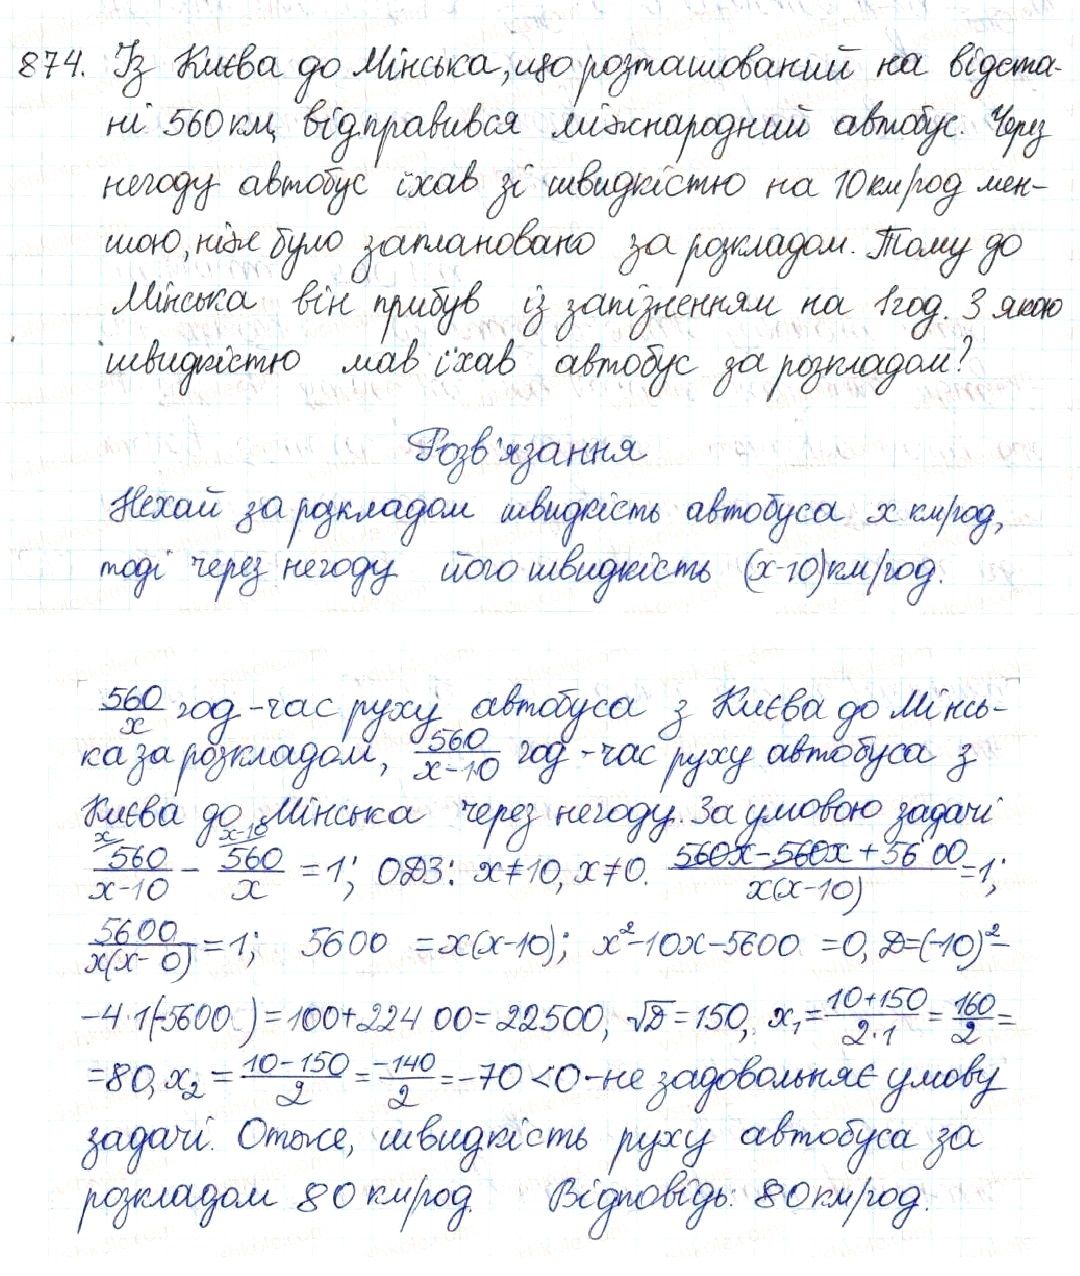 874. Із Києва до Мінська, що розташований на відста-
ні 560 км, відправився міжнародний автобус. Через
негоду автобус їхав зі швидкістю на 10 км/год мен-
шою, ніж було заплановано за розкладом. Тому до
Мінська він прибув із запізненням на 1 год. З якою
швидкістю мав їхав автобус за розкладом?
Розв'язання
Нехай за розкладом швидкість автобуса x км/год,
тоді через негоду його швидкість (x-10) км/год.
560/x год - час руху автобуса з Києва до Мінсь-
ка за розкладом, 560/(x-10) год - час руху автобуса з
Києва до Мінська через негоду. За умовою задачі
x/ 560/(x-10) - x-10/ 560/x = 1; ОДЗ: x≠10, x≠0. (560x-560x+5600)/(x(x-10)) = 1;
5600/(x(x- 0)) = 1; 5600 = x(x-10); x²-10x-5600 = 0, D=(-10)²-
-4·1(-5600) = 100+22400 = 22500, √D = 150, x₁ = (10+150)/(2·1) = 160/2 =
=80, x₂ = (10-150)/2 = -140/2 = -70 < 0 - не задовольняє умову
задачі. Отже, швидкість руху автобуса за
розкладом 80 км/год. Відповідь: 80 км/год.